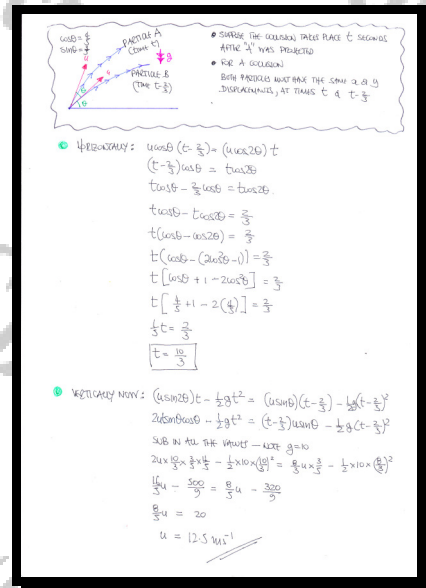 cosθ = 4/5
sinθ = 3/5
PARTICLE A
(TIME t)
u
g
u
PARTICLE B
(TIME t-2/3)
θ
θ
• SUPPOSE THE COLLISION TAKES PLACE t SECONDS
AFTER "A" WAS PROJECTED
• FOR A COLLISION
BOTH PARTICLES MUST HAVE THE SAME x & y
DISPLACEMENTS, AT TIMES t & t-2/3
HORIZONTALLY: ucosθ(t-2/3) = (ucos2θ)t
(t-2/3)cosθ = tcos2θ
tcosθ - 2/3cosθ = tcos2θ
tcosθ - tcos2θ = 2/3
t(cosθ - cos2θ) = 2/3
t(cosθ - (2cos²θ-1)) = 2/3
t[cosθ + 1 - 2cos²θ] = 2/3
t[4/5 + 1 - 2(4/5)] = 2/3
1/5t = 2/3
t = 10/3
b) VERTICALLY NOW: (usin2θ)t - 1/2gt² = (usinθ)(t-2/3) - 1/2g(t-2/3)²
2utsinθcosθ - 1/2gt² = (t-2/3)usinθ - 1/2g(t-2/3)²
SUB IN ALL THE VALUES — NOTE g=10
2u×10/3×3/5×4/5 - 1/2×10×(10/3)² = 8/3u×3/5 - 1/2×10×(8/3)²
16/5u - 500/9 = 8/5u - 320/9
8/5u = 20
u = 12.5 ms⁻¹